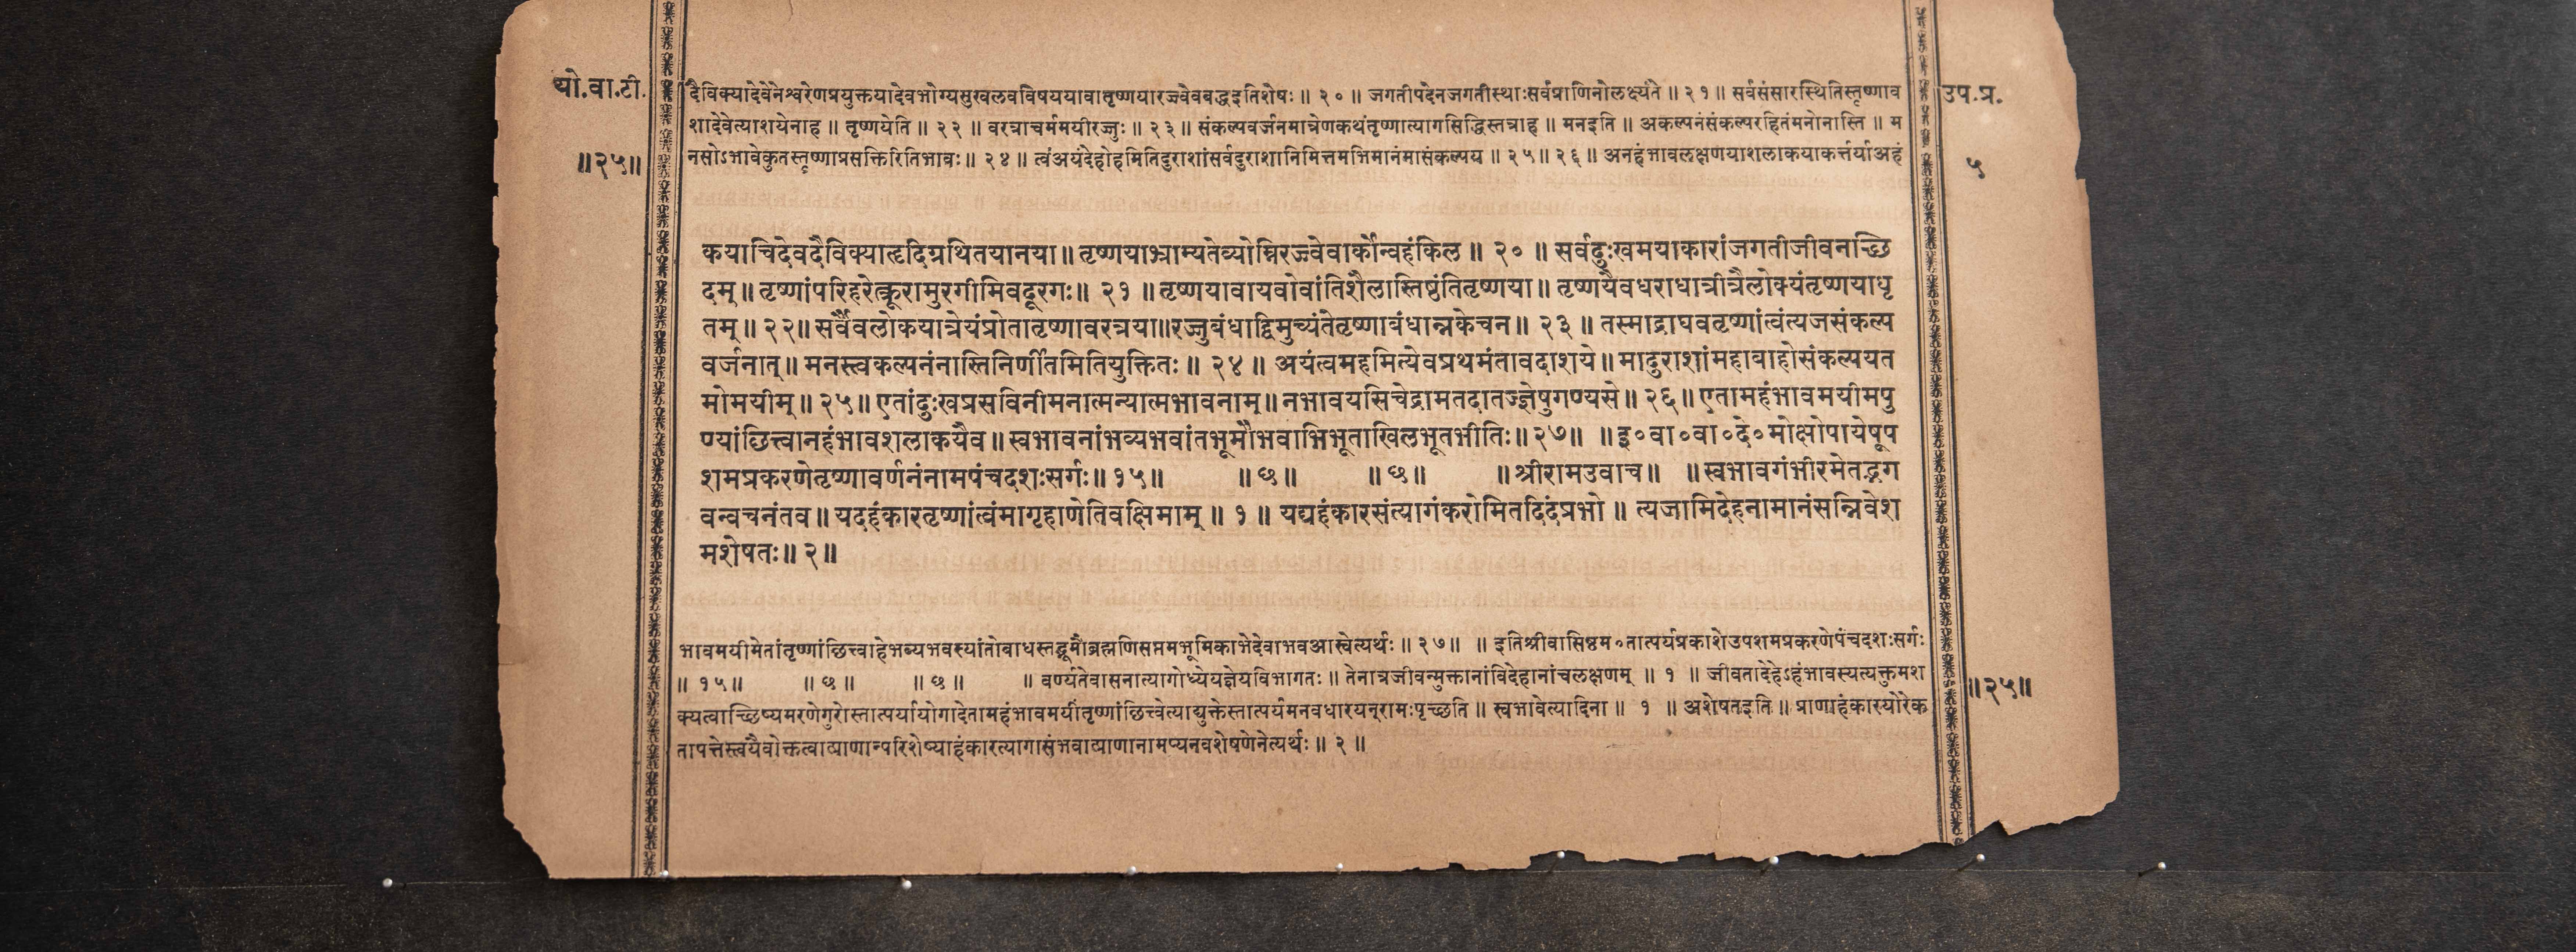 यो.वा.टी.
दैविक्यादेवेनेश्वरेणप्रयुक्तयादेवभोग्यसुखलवविषययावातृष्णयारज्ज्वेवबद्धइतिशेषः ॥ २० ॥ जगतीपदेनजगतीस्थाःसर्वप्राणिनोलक्ष्यंते ॥ २१ ॥ सर्वसंसारस्थितिस्तृष्णाव
उप.प्र.
शादेवेत्याशयेनाह ॥ तृष्णयेति ॥ २२ ॥ वरत्राचर्ममयीरज्जुः ॥ २३ ॥ संकल्पवर्जनमात्रेणकथंतृष्णात्यागसिद्धिस्तत्राह ॥ मनइति ॥ अकल्पनंसंकल्परहितंमनोनास्ति ॥ म
॥२५॥
नसोऽभावेकुतस्तृष्णाप्रसक्तिरितिभावः ॥ २४ ॥ त्वंअयंदेहोहमितिदुराशांसर्वदुराशानिमित्तमभिमानंमासंकल्पय ॥ २५ ॥ २६ ॥ अनहंभावलक्षणयाशलाकयाकर्त्तर्याअहं
५
कयाचिदेवदैविक्याहृदिग्रथितयानया ॥ तृष्णयाभ्राम्यतेव्योम्निरज्ज्वेवार्कोन्वहंकिल ॥ २० ॥ सर्वदुःखमयाकारांजगतीजीवनच्छि
दम् ॥ तृष्णांपरिहरेत्क्रूरामुरगीमिवदूरगः ॥ २१ ॥ तृष्णयावायवोवांतिशैलास्तिष्ठंतितृष्णया ॥ तृष्णयैवधराधात्रीत्रैलोक्यंतृष्णयाधृ
तम् ॥ २२ ॥ सर्वैवलोकयात्रेयंप्रोतातृष्णावरत्रया॥रज्जुबंधाद्विमुच्यंतेतृष्णाबंधान्नकेचन ॥ २३ ॥ तस्माद्राघवतृष्णांत्वंत्यजसंकल्प
वर्जनात् ॥ मनस्त्वकल्पनंनास्तिनिर्णीतमितियुक्तितः ॥ २४ ॥ अयंत्वमहमित्येवप्रथमंतावदाशये ॥ मादुराशांमहाबाहोसंकल्पयत
मोमयीम् ॥ २५ ॥ एतांदुःखप्रसविनीमनात्मन्यात्मभावनाम् ॥ नभावयसिचेद्रामतदातज्ज्ञेषुगण्यसे ॥ २६ ॥ एतामहंभावमयीमपु
ण्यांछित्त्वानहंभावशलाकयैव ॥ स्वभावनांभव्यभवांतभूमौभवाभिभूताखिलभूतभीतिः ॥ २७ ॥ ॥ इ०वा०वा०दे०मोक्षोपायेषूप
शमप्रकरणेतृष्णावर्णनंनामपंचदशःसर्गः ॥ १५ ॥ ॥ छ ॥ ॥ छ ॥ ॥ श्रीरामउवाच ॥ ॥ स्वभावगंभीरमेतद्भग
वन्वचनंतव ॥ यदहंकारतृष्णांत्वंमागृहाणेतिवक्षिमाम् ॥ १ ॥ यद्यहंकारसंत्यागंकरोमितदिदंप्रभो ॥ त्यजामिदेहनामानंसन्निवेश
मशेषतः ॥ २ ॥
भावमयीमेतांतृष्णांछित्त्वाहेभव्यभवस्यांतोबाधस्तद्भूमौब्रह्मणिसप्तमभूमिकाभेदेवाभवआस्वेत्यर्थः ॥ २७ ॥ ॥ इतिश्रीवासिष्ठम०तात्पर्यप्रकाशेउपशमप्रकरणेपंचदशःसर्गः
॥ १५ ॥ ॥ छ ॥ ॥ छ ॥ ॥ वर्ण्यतेवासनात्यागोध्येयज्ञेयविभागतः ॥ तेनात्रजीवन्मुक्तानांविदेहानांचलक्षणम् ॥ १ ॥ जीवतादेहेऽहंभावस्यत्यक्तुमश
॥२५॥
क्यत्वाच्छिष्यमरणेगुरोस्तात्पर्यायोगादेतामहंभावमयींतृष्णांछित्त्वेत्याद्युक्तेस्तात्पर्यमनवधारयन्रामःपृच्छति ॥ स्वभावेत्यादिना ॥ १ ॥ अशेषतइति ॥ प्राणाहंकारयोरेक
तापत्तेस्त्वयैवोक्तत्वात्प्राणान्परिशेष्याहंकारत्यागासंभवात्प्राणानामप्यनवशेषणेनेत्यर्थः ॥ २ ॥